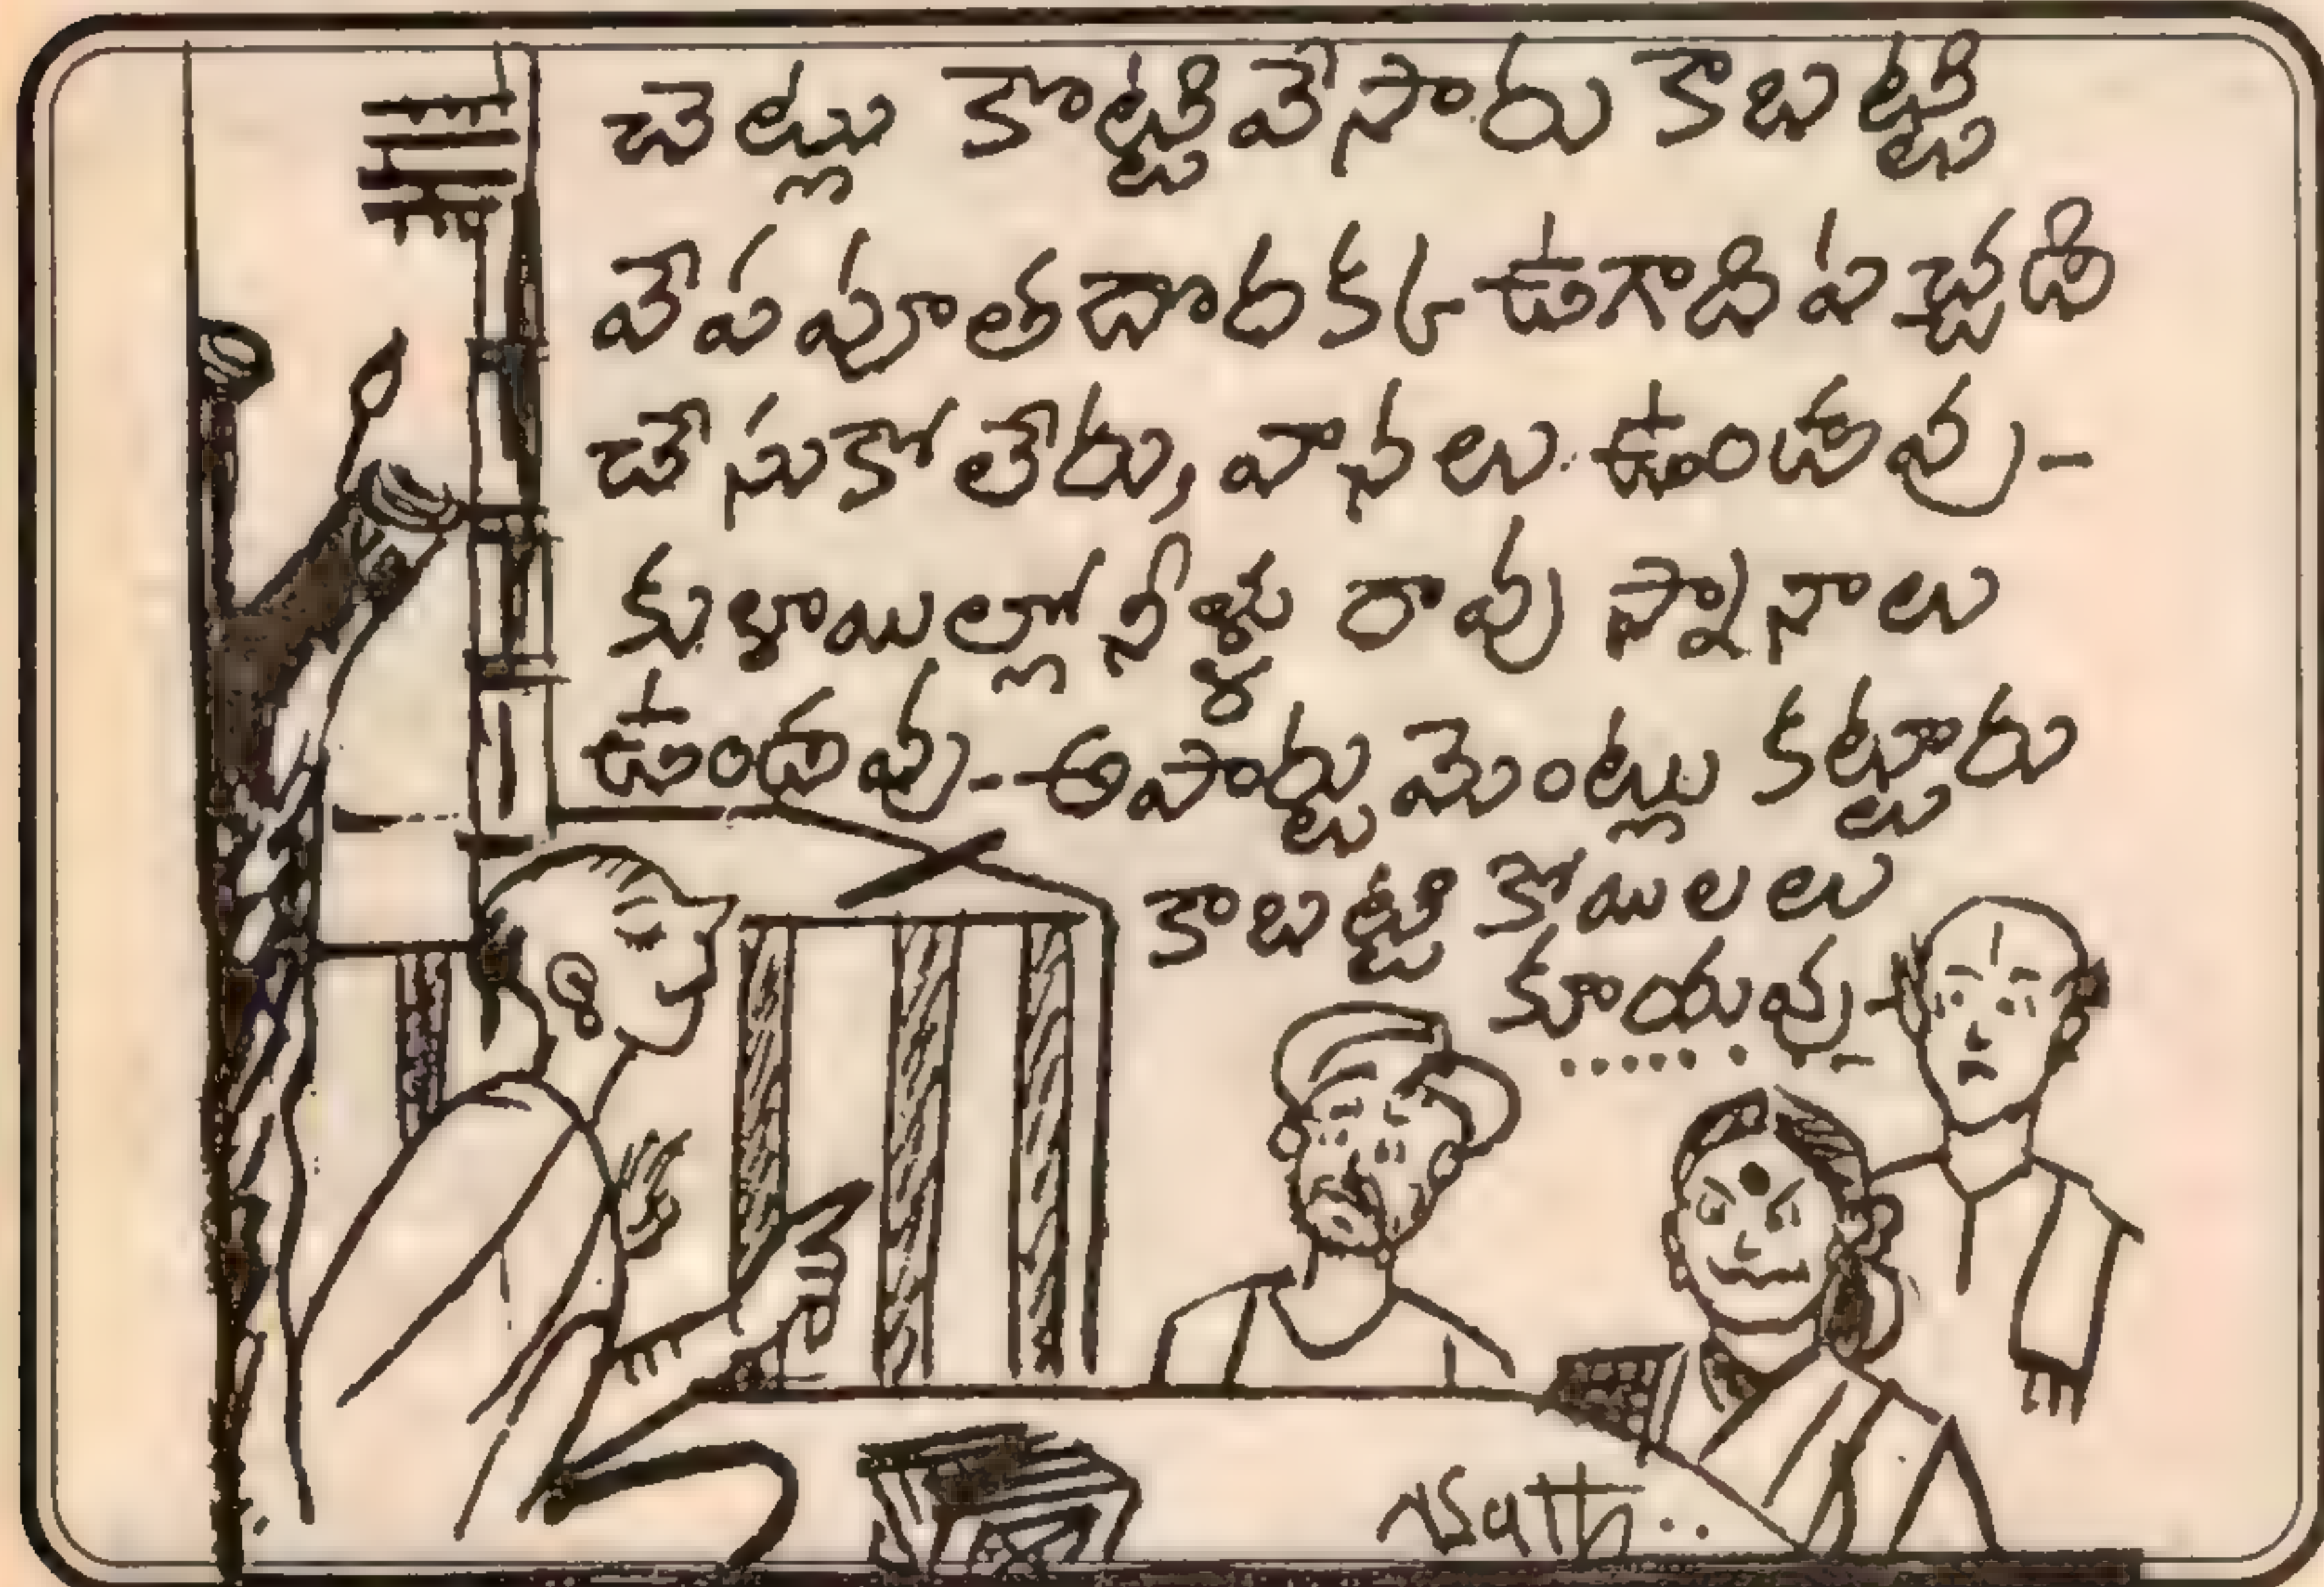 చెట్లు కొట్టివేసారు కాబట్టి
వేపపూత దొరకక ఉగాది పచ్చడి
చేసుకోలేరు, వానలు ఉండవు-
కుళాయిల్లో నీళ్ళు రావు స్నానాలు
ఉండవు- అపార్ట్మెంట్లు కట్టారు
కాబట్టి కోయిలలు
కూయవు-